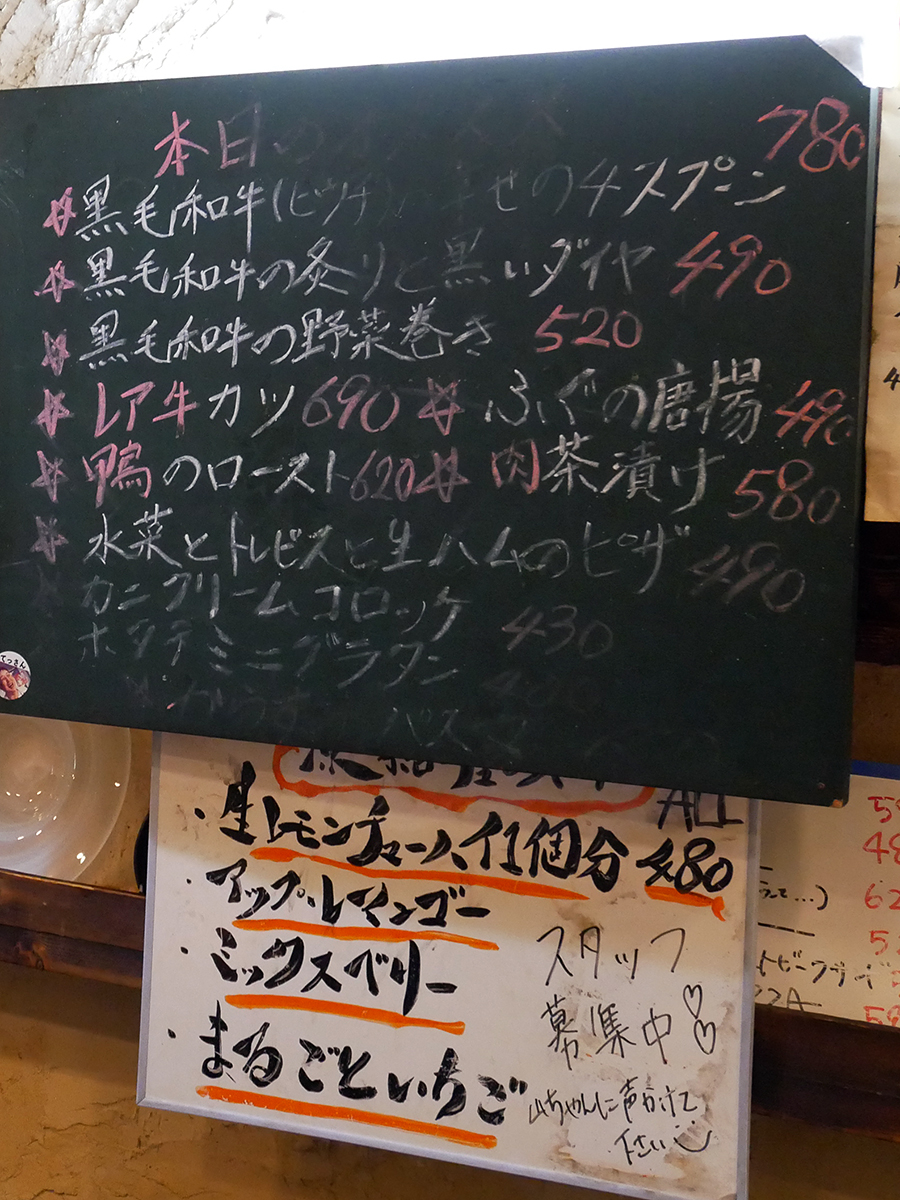 本日のオススメ
780
☆黒毛和牛(ビウチ)幸せの4スプーン
☆黒毛和牛の炙りと黒いダイヤ 490
☆黒毛和牛の野菜巻き 520
☆レア牛カツ690 ☆ふぐの唐揚 490
☆鴨のロースト620 ☆肉茶漬け 580
☆水菜とトレビスと生ハムのピザ 490
カニクリームコロッケ 430
ホタテミニグラタン 400
てっさん
ALL
・生レモンチューハイ1個分 480
・アップルマンゴー
・ミックスベリー
・まるごといちご
スタッフ
募集中♡♡
山ちゃんに声かけて
下さい
62